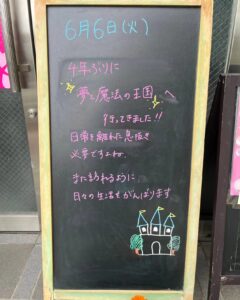 6月6日(火)
4年ぶりに
夢と魔法の王国へ
行ってきました!!
日常を離れた息抜き
必要ですよね。
また訪れるように
日々の生活もがんばります